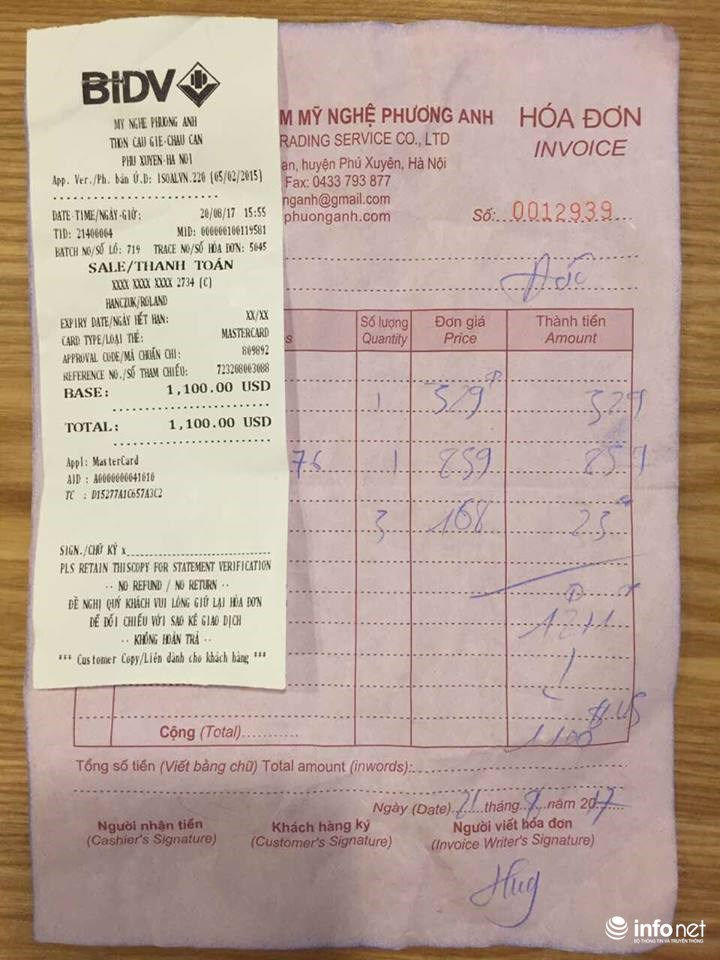 BIDV
MỸ NGHỆ PHƯƠNG ANH
THÔN CẦU GIẼ-CHÂU CAN
PHÚ XUYÊN-HÀ NỘI
App. Ver./Ph. bản Ứ.D: ISOALVN.220 (05/02/2015)
DATE TIME/NGÀY-GIỜ: 20/08/17 15:55
TID: 21400004 MID: 000000100119581
BATCH NO/SỐ LÔ: 719 TRACE NO/SỐ HÓA ĐƠN: 5045
SALE/THANH TOÁN
XXXX XXXX XXXX 2734 (C)
HANCZUK/ROLAND
EXPIRY DATE/NGÀY HẾT HẠN: XX/XX
CARD TYPE/LOẠI THẺ: MASTERCARD
APPROVAL CODE/MÃ CHUẨN CHI: 809892
REFERENCE NO./SỐ THAM CHIẾU: 723208003088
BASE: 1,100.00 USD
TOTAL: 1,100.00 USD
Appl: MasterCard
AID : A0000000041010
TC : D15277A1C657A3C2
SIGN./CHỮ KÝ x
PLS RETAIN THISCOPY FOR STATEMENT VERIFICATION
-- NO REFUND / NO RETURN --
ĐỀ NGHỊ QUÝ KHÁCH VUI LÒNG GIỮ LẠI HÓA ĐƠN
ĐỂ ĐỐI CHIẾU VỚI SAO KÊ GIAO DỊCH
-- KHÔNG HOÀN TRẢ --
*** Customer Copy/Liên dành cho khách hàng ***
M MỸ NGHỆ PHƯƠNG ANH
RADING SERVICE CO., LTD
an, huyện Phú Xuyên, Hà Nội
Fax: 0433 793 877
nganh@gmail.com
phuonganh.com
HÓA ĐƠN
INVOICE
Số: 0012939
s
Số lượng
Quantity
Đơn giá
Price
Thành tiền
Amount
1 329 329
76 1 859 859
3 168 23
1211
1100 $US
Cộng (Total)
Tổng số tiền (Viết bằng chữ) Total amount (inwords):
Ngày (Date) 21 tháng 9 năm 2017
Người nhận tiền
(Cashier's Signature)
Khách hàng ký
(Customer's Signature)
Người viết hóa đơn
(Invoice Writer's Signature)
infonet
BỘ THÔNG TIN VÀ TRUYỀN THÔNG